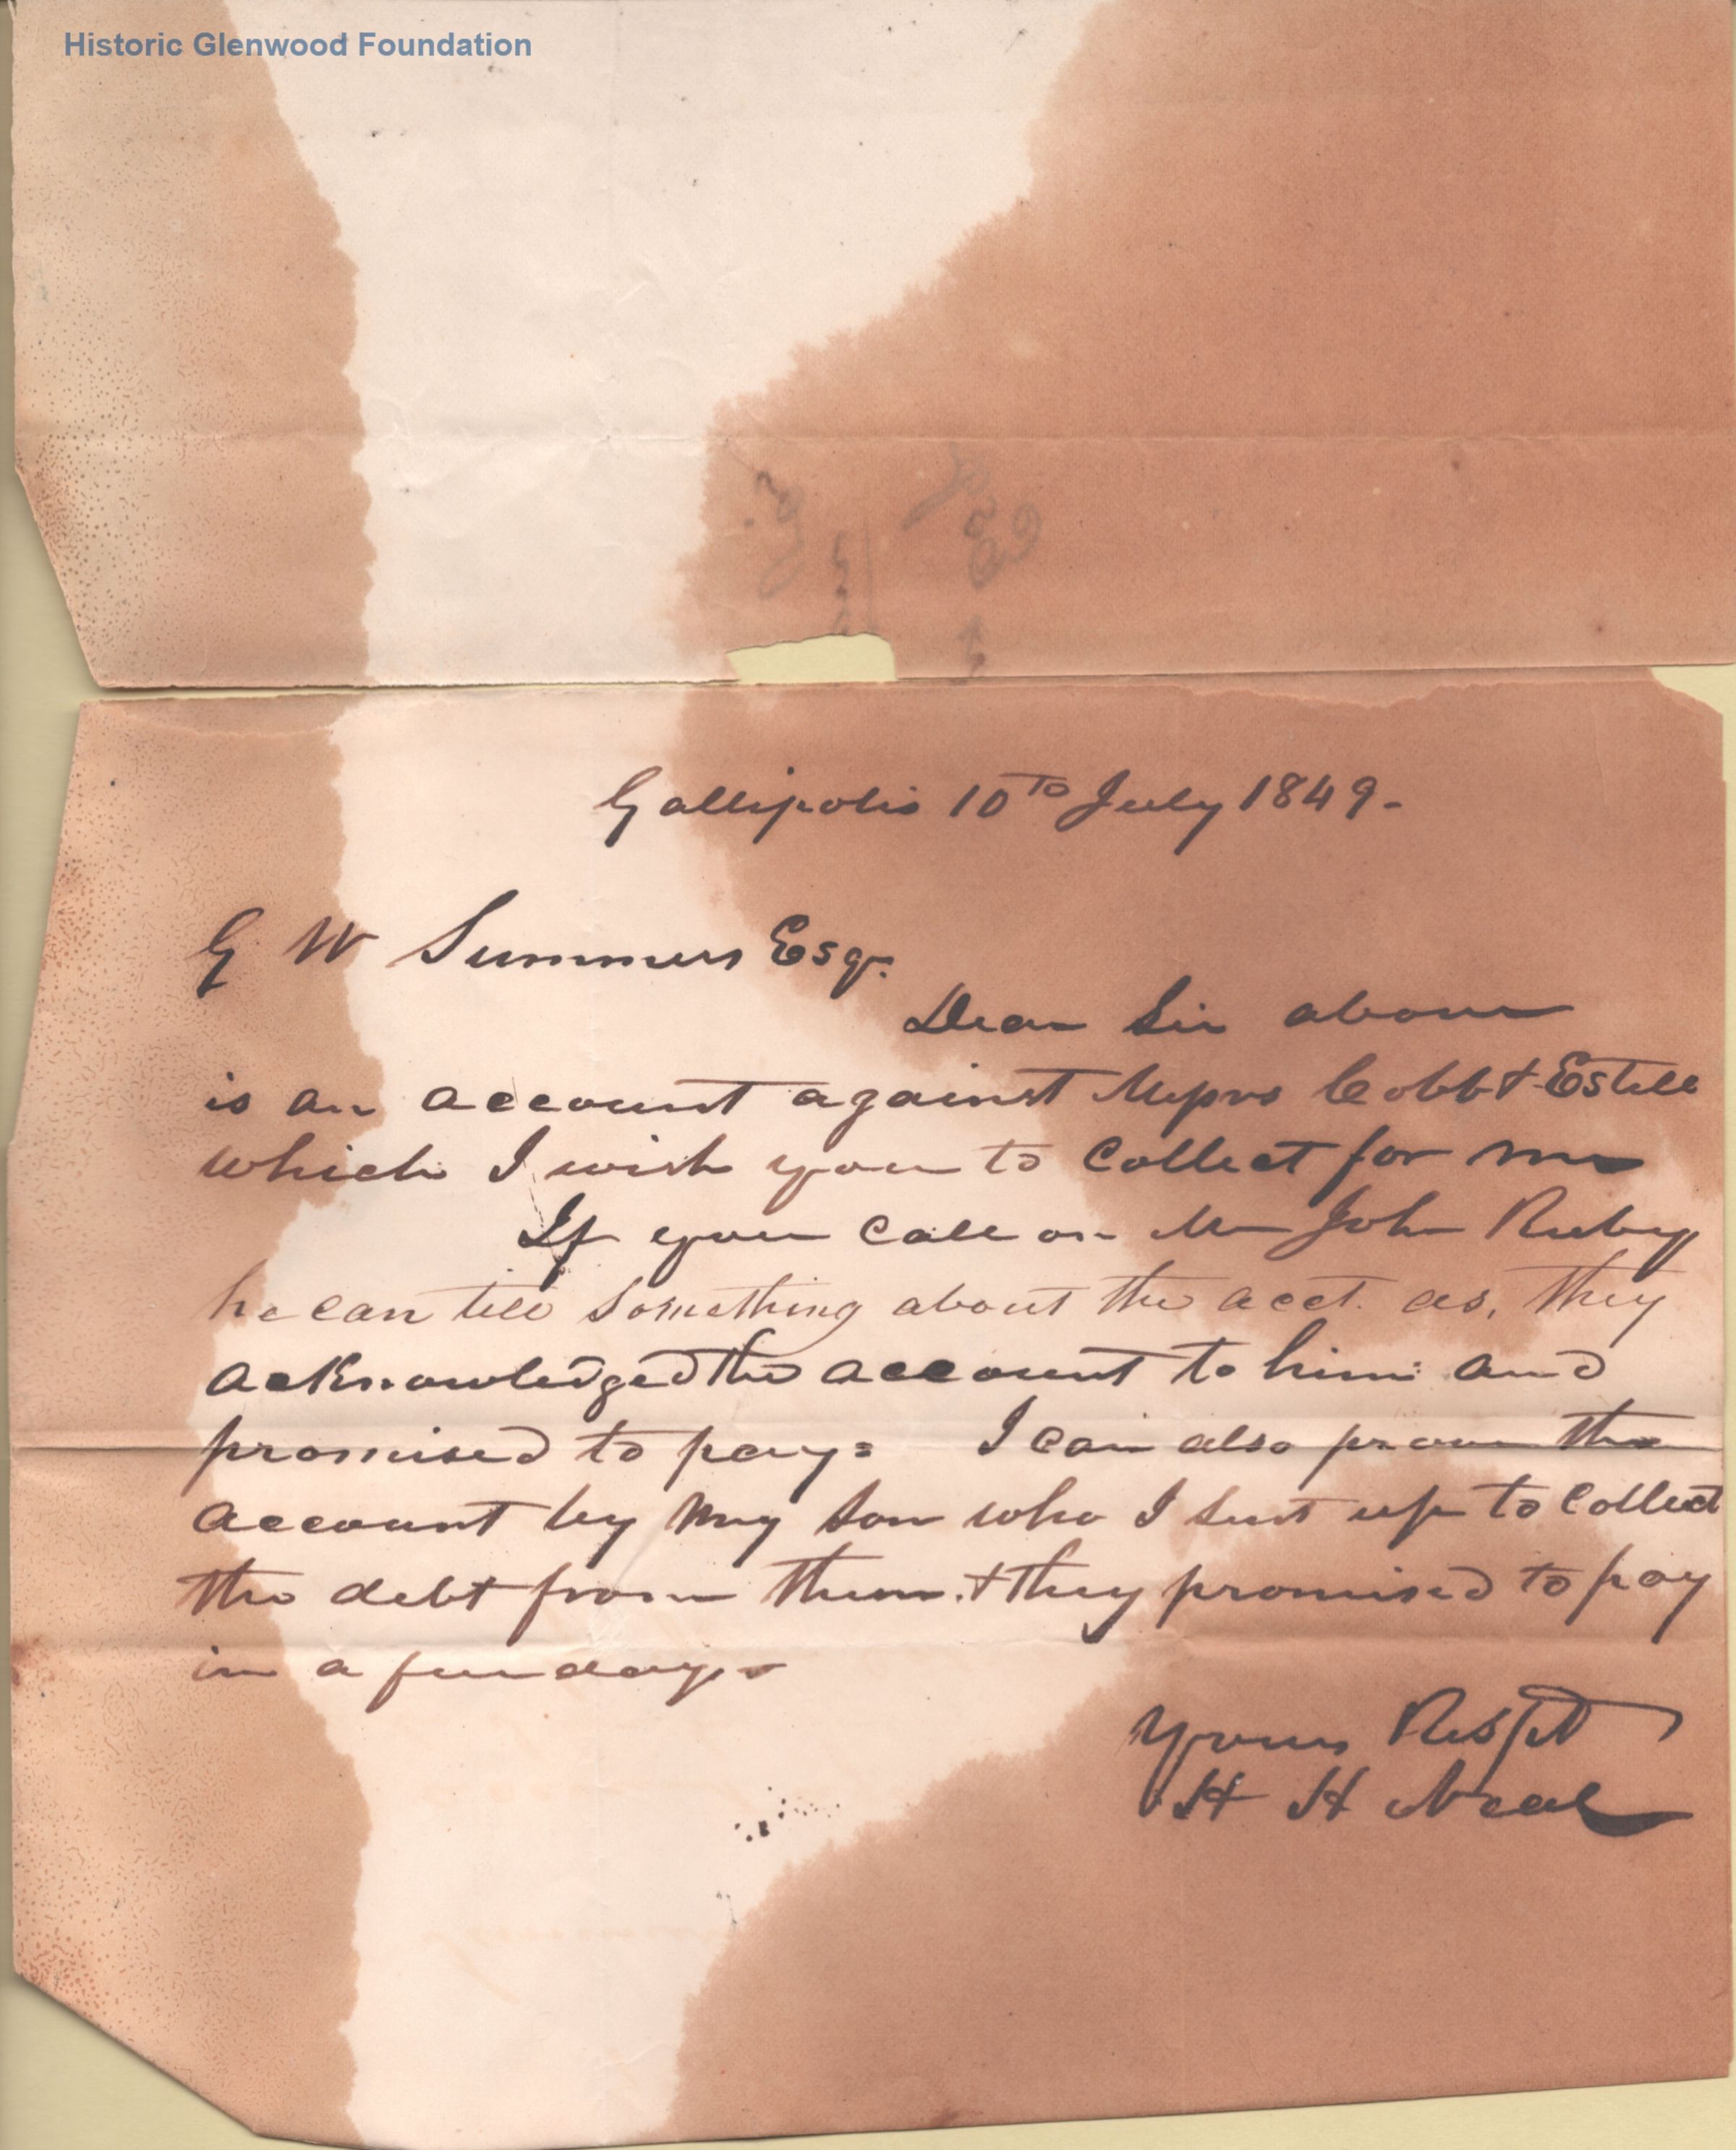 Historic Glenwood Foundation
Gallipolis 10th July 1849-
G W Summers Esqr.
Dear Sir above
is an account against Messrs Cobb & Estill
which I wish you to Collect for me
If you Call on Mr John Ruby
he can tell something about the acct. as, they
acknowledged the account to him and
promised to pay= I can also prove the
account by my son who I sent up to Collect
the debt from them. & they promised to pay
in a few days-
Yours Respt
H H Neal